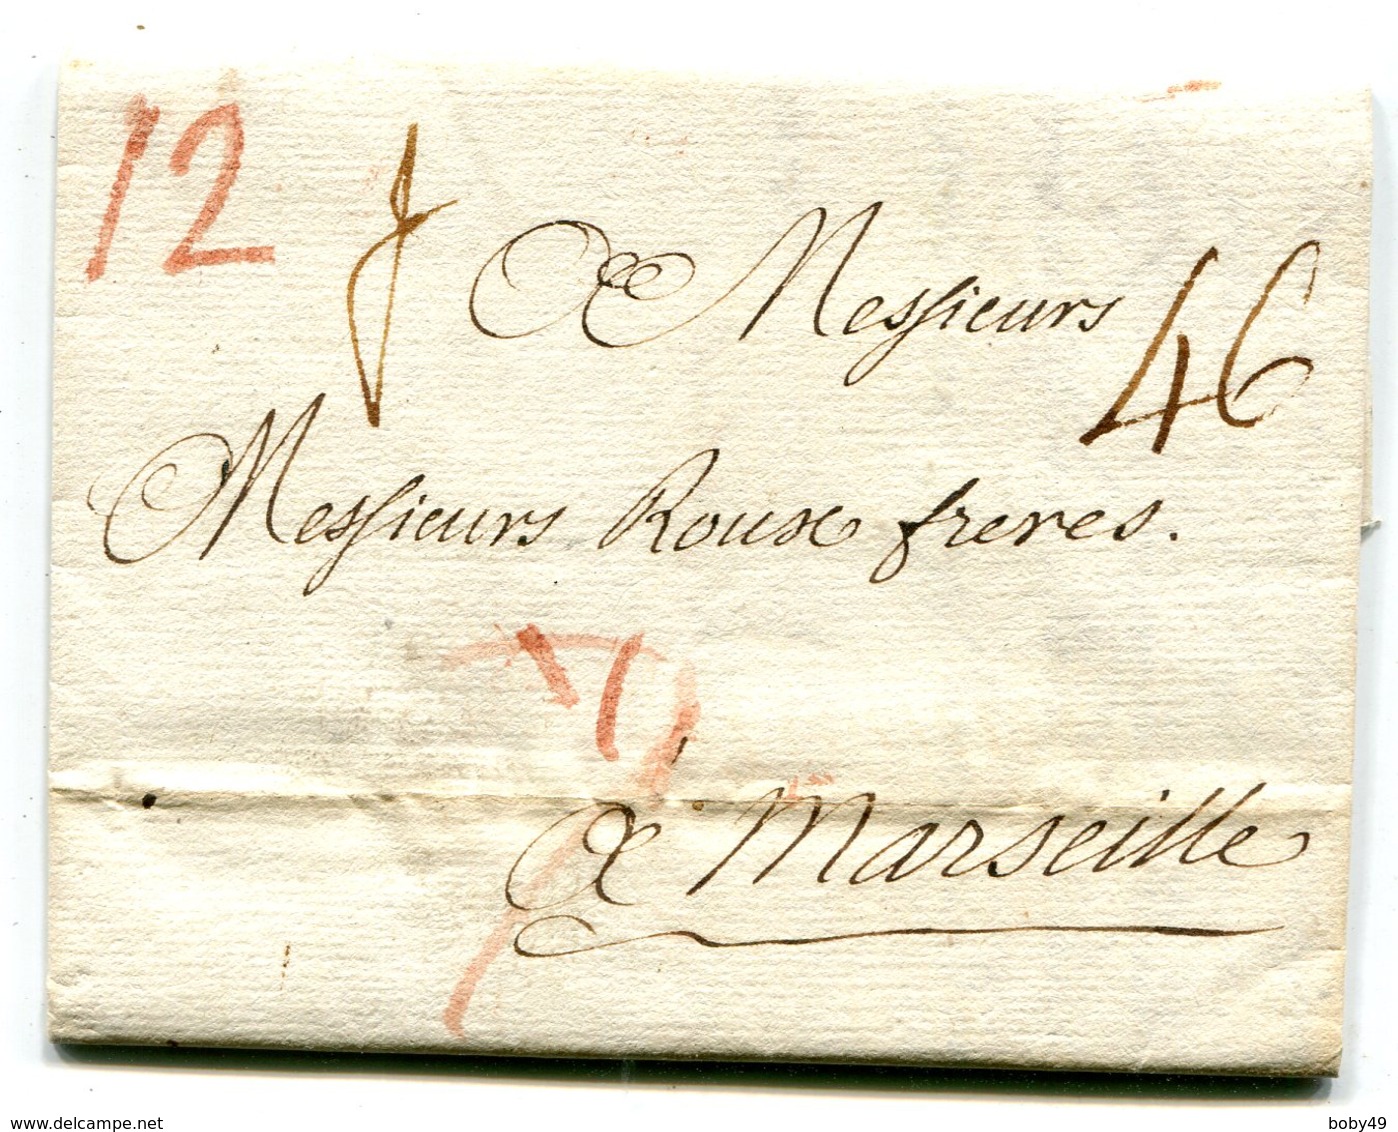 12
A Messieurs
46
Messieurs Roux freres.
à Marseille
www.delcampe.net
boby49